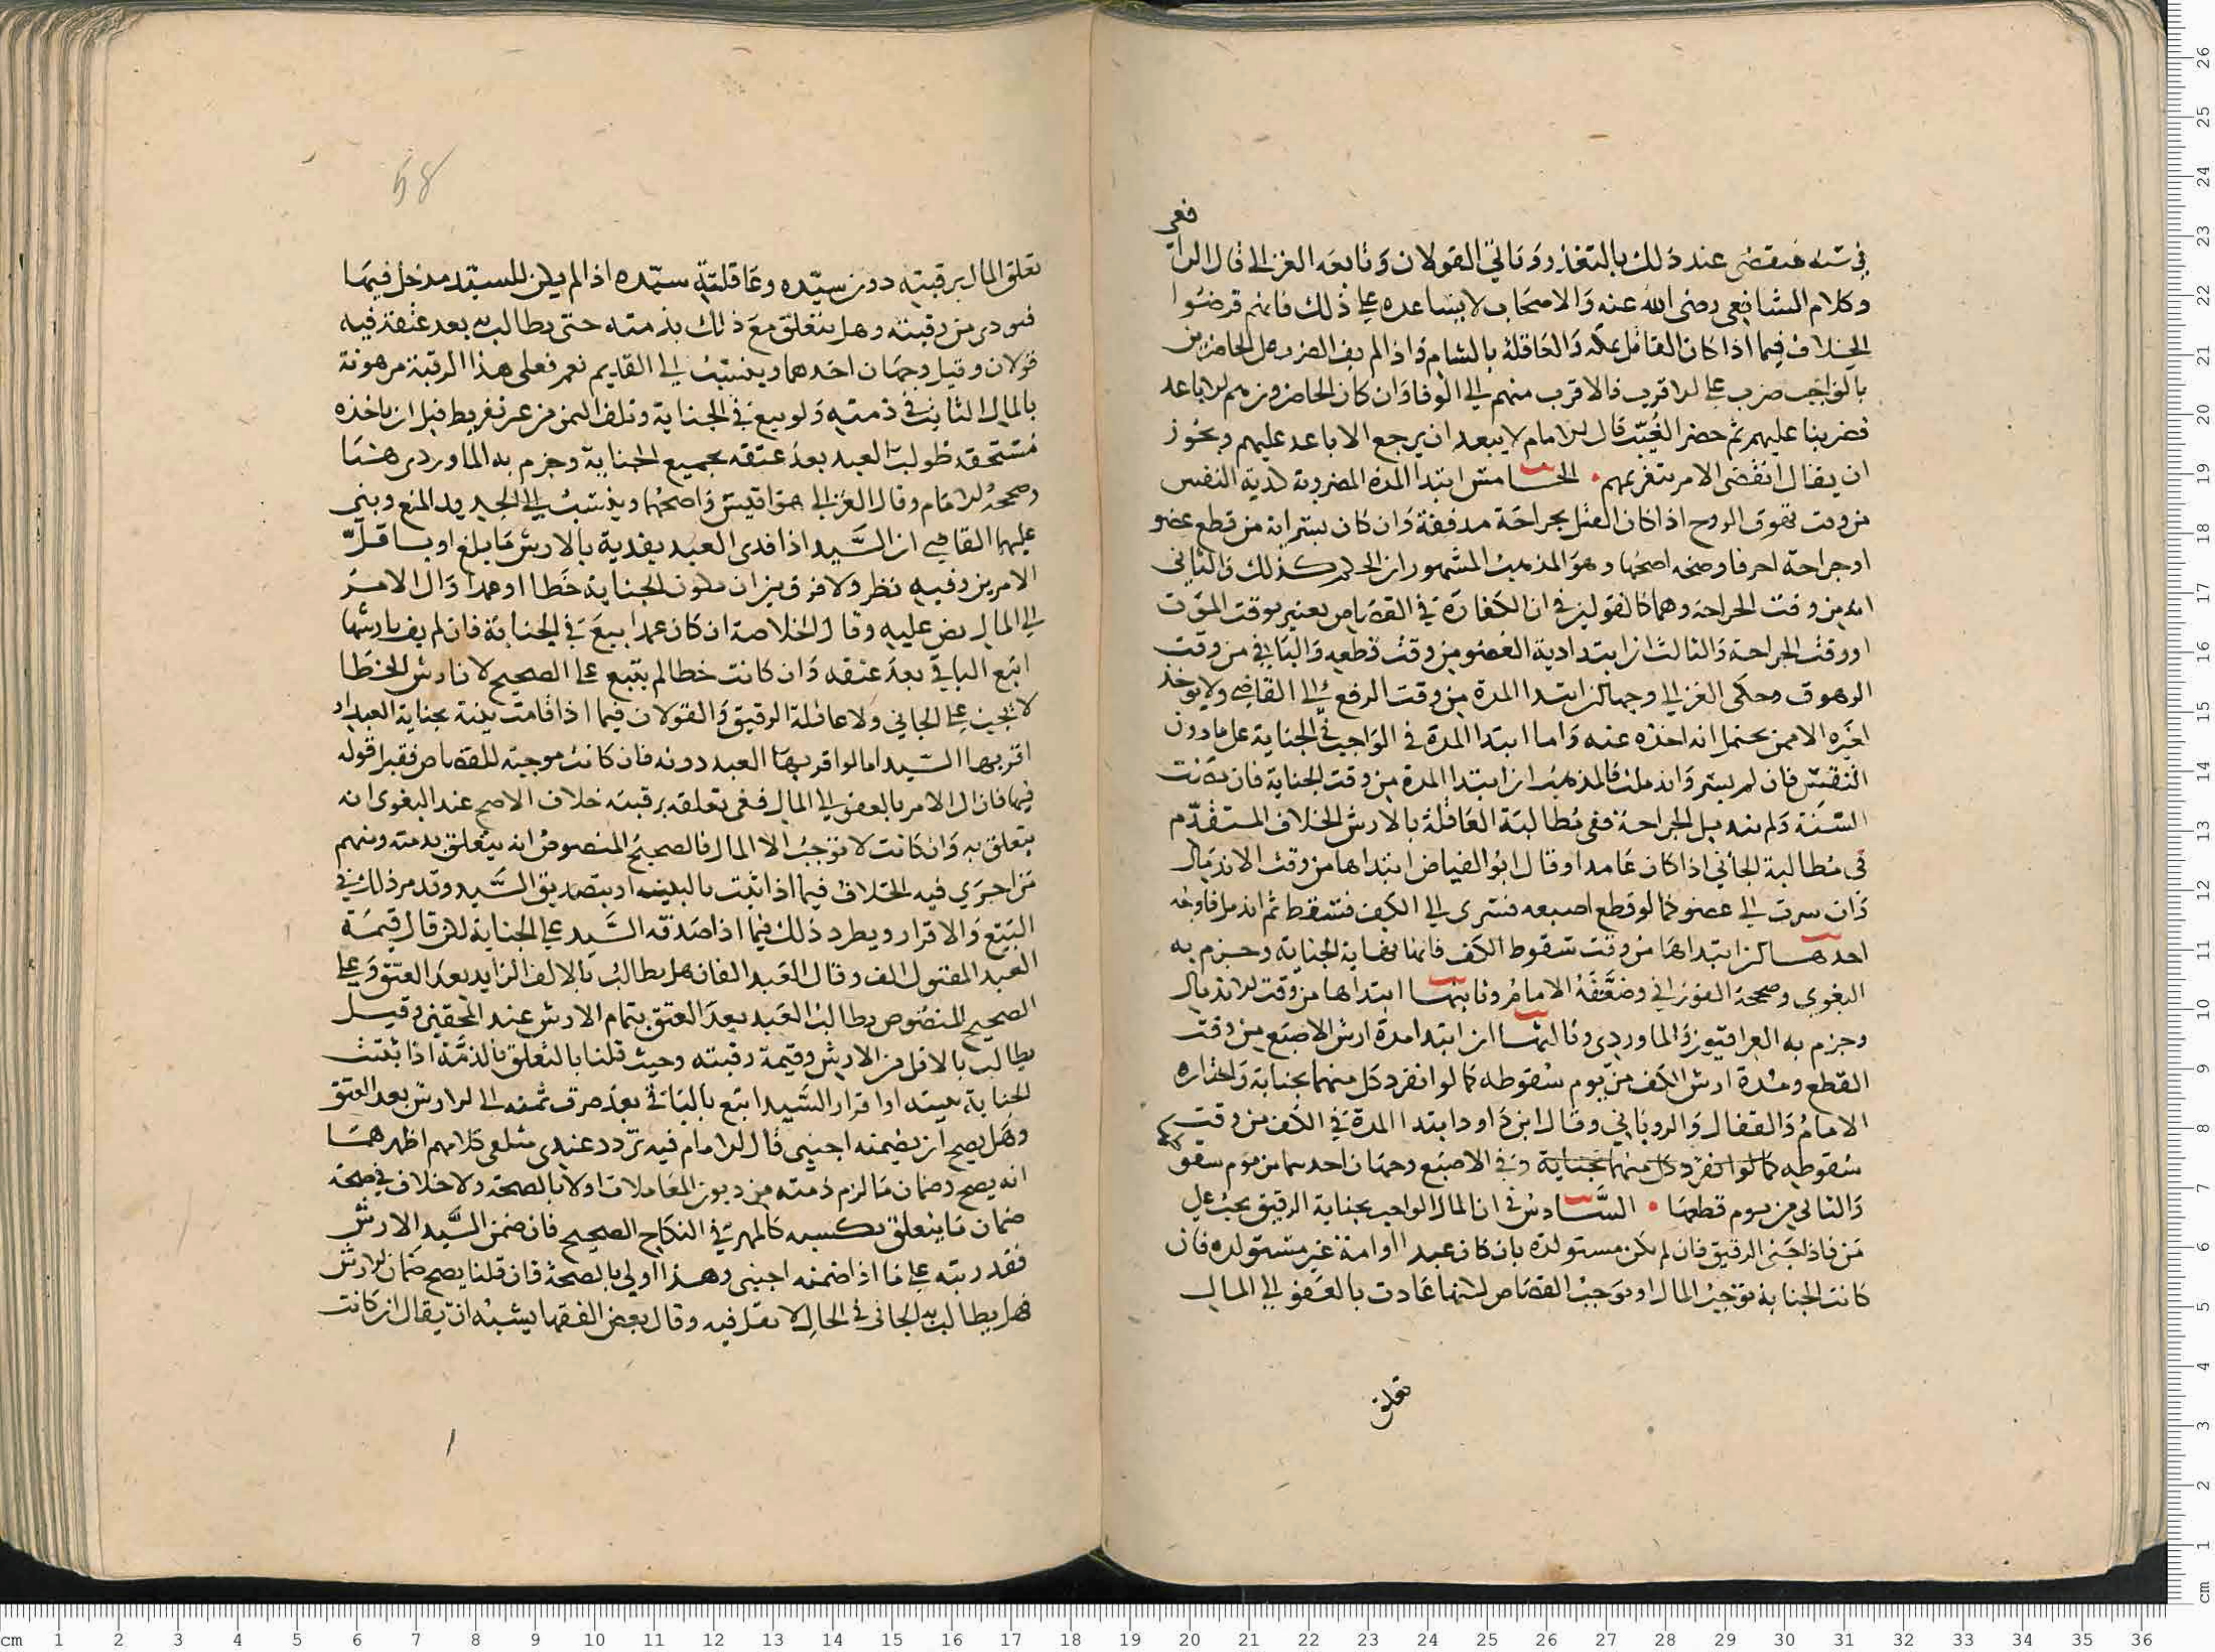 في سنة فينقضى عند ذلك بالتعذر وتاتي القولان وتابعه الغزالي قال الرا
فعى
وكلام الشافعي رضى الله عنه والاصحاب لا يساعده على ذلك فانهم فرضوا
الخلاف فيما اذا كان القاتل بمكة والعاقلة بالشام واذا لم يف الضرب على الحاضرين
بالواجب ضرب على الاقرب فالاقرب منهم الى الوفا وان كان الحاضرون هم الاباعد
فضربنا عليهم ثم حضر الغيب قال الامام لا يبعد ان يرجع الاباعد عليهم ويجوز
ان يقال انقضى الامر بتغريمهم الخامس ابتدا المدة المضروبة لدية النفس
من وقت زهوق الروح اذا كان القتل بجراحة مدففة وان كان بسراية من قطع عضو
او جراحة اخرى فاوجه اصحها وهو المذهب المشهور ان الحكم كذلك والثاني
انه من وقت الجراحة وهما كالقولين في ان الكفارة في القصاص يعتبر بوقت الموت
او وقت الجراحة والثالث ان ابتدا دية العضو من وقت قطعه والباقي من وقت
الزهوق وحكى الغزالي وجها ان ابتدا المدة من وقت الرفع الى القاضي ولا يوخذ
لغيره الا ممن يحتمل انه اخذه عنه واما ابتدا المدة في الواجب في الجناية على ما دون
النفس فان لم يسر واندملت فالمذهب ان ابتدا المدة من وقت الجناية فان مضت
السنة ولم يندمل الجراحة ففي مطالبة العاقلة بالارش الخلاف المتقدم
في مطالبة الجاني اذا كان عامدا وقال ابو الفياض ابتداها من وقت الاندمال
وان سرت الى عضو كما لو قطع اصبعه فسرى الى الكف فسقط ثم اندمل فاوجه
احدها ان ابتداها من وقت سقوط الكف فانها نهاية الجناية وجزم به
البغوي وصححه الفوراني وضعفه الامام وثانيها ابتداها من وقت الاندمال
وجزم به العراقيون والماوردي وثالثها ان ابتدا مدة ارش الاصبع من وقت
القطع ومدة ارش الكف من يوم سقوطه كما لو انفرد كل منهما بجناية واختاره
الامام والقفال والروياني وقال ابن داود ابتدا المدة في الكف من وقت
سقوطه كما لو انفرد كل منهما بجناية وفي الاصبع وجهان احدهما من يوم سقو
طها
والثاني من يوم قطعها السادس في ان المال الواجب بجناية الرقيق يجب على
من فاذا جنى الرقيق فان لم يكن مستولدة بان كان عبدا او امة غير مستولدة فان
كانت الجناية توجب المال او توجب القصاص لكنها عادت بالعفو الى المال
تعلق
58
تعلق المال برقبته دون سيده وعاقلة سيده اذا لم يكن للسيد مدخل فيها
فيودى من رقبته وهل يتعلق مع ذلك بذمته حتى يطالب به بعد عتقه فيه
قولان وقيل وجهان احدهما وينسب الى القديم نعم فعلى هذا الرقبة مرهونة
بالمال الثابت في ذمته ولو بيع في الجناية وتلف الثمن من غير تفريط قبل ان ياخذه
مستحقه طولب العبد بعد عتقه بجميع الجناية وجزم به الماوردى هنا
وصححه الامام وقال الغزالي هو اقيس واصحهما وينسب الى الجديد المنع وبنى
عليهما القاضي ان السيد اذا فدى العبد يفديه بالارش ما بلغ او باقل
الامرين وفيه نظر ولا فرق بين ان تكون الجناية خطا او عمدا وال الامر
الى المال نص عليه وقال في الخلاصة ان كان عمدا بيع في الجناية فان لم يف بارشها
اتبع الباقي بعد عتقه وان كانت خطا لم يتبع على الصحيح لان ارش الخطا
لا يجب على الجاني ولا عاقلة الرقيق والقولان فيما اذا قامت بينة بجناية العبد او
اقر بها السيد اما لو اقر بها العبد دونه فان كانت موجبة للقصاص فقبل قوله
فيها فان ال الامر بالعفو الى المال ففي تعلقه برقبته خلاف الاصح عند البغوى انه
يتعلق به وان كانت لا توجب الا المال فالصحيح المنصوص انه يتعلق بذمته ومنهم
من اجرى فيه الخلاف فيما اذا ثبت بالبينة او بتصديق السيد وقد مر ذلك في
البيع والاقرار ويطرد ذلك فيما اذا صدقه السيد على الجناية لكن قال قيمة
العبد المقتول الف وقال العبد الفان هل يطالب بالالف الزايد بعد العتق وعلى
الصحيح المنصوص يطالب العبد بعد العتق بتمام الارش عند المحققين وقيل
يطالب بالاقل من الارش وقيمة رقبته وحيث قلنا بالتعلق بالذمة اذا ثبتت
الجناية ببينة او اقرار السيد اتبع بالباقي بعد صرف ثمنه الى الارش بعد العتق
وهل يصح ان يضمنه اجنبي قال الامام فيه تردد عندى متلقى كلامهم اظهرهما
انه يصح وضمان ما لزم ذمته من ديون المعاملات اولا بالصحة ولا خلاف في صحة
ضمان ما يتعلق بكسبه كالمهر في النكاح الصحيح فان ضمن السيد الارش
فقد رتبه على ما اذا ضمنه اجنبي وهذا اولى بالصحة فان قلنا يصح ضمان الارش
فهل يطالب به الجاني في الحال لا نقل فيه وقال بعض الفقها يشبه ان يقال ان كانت